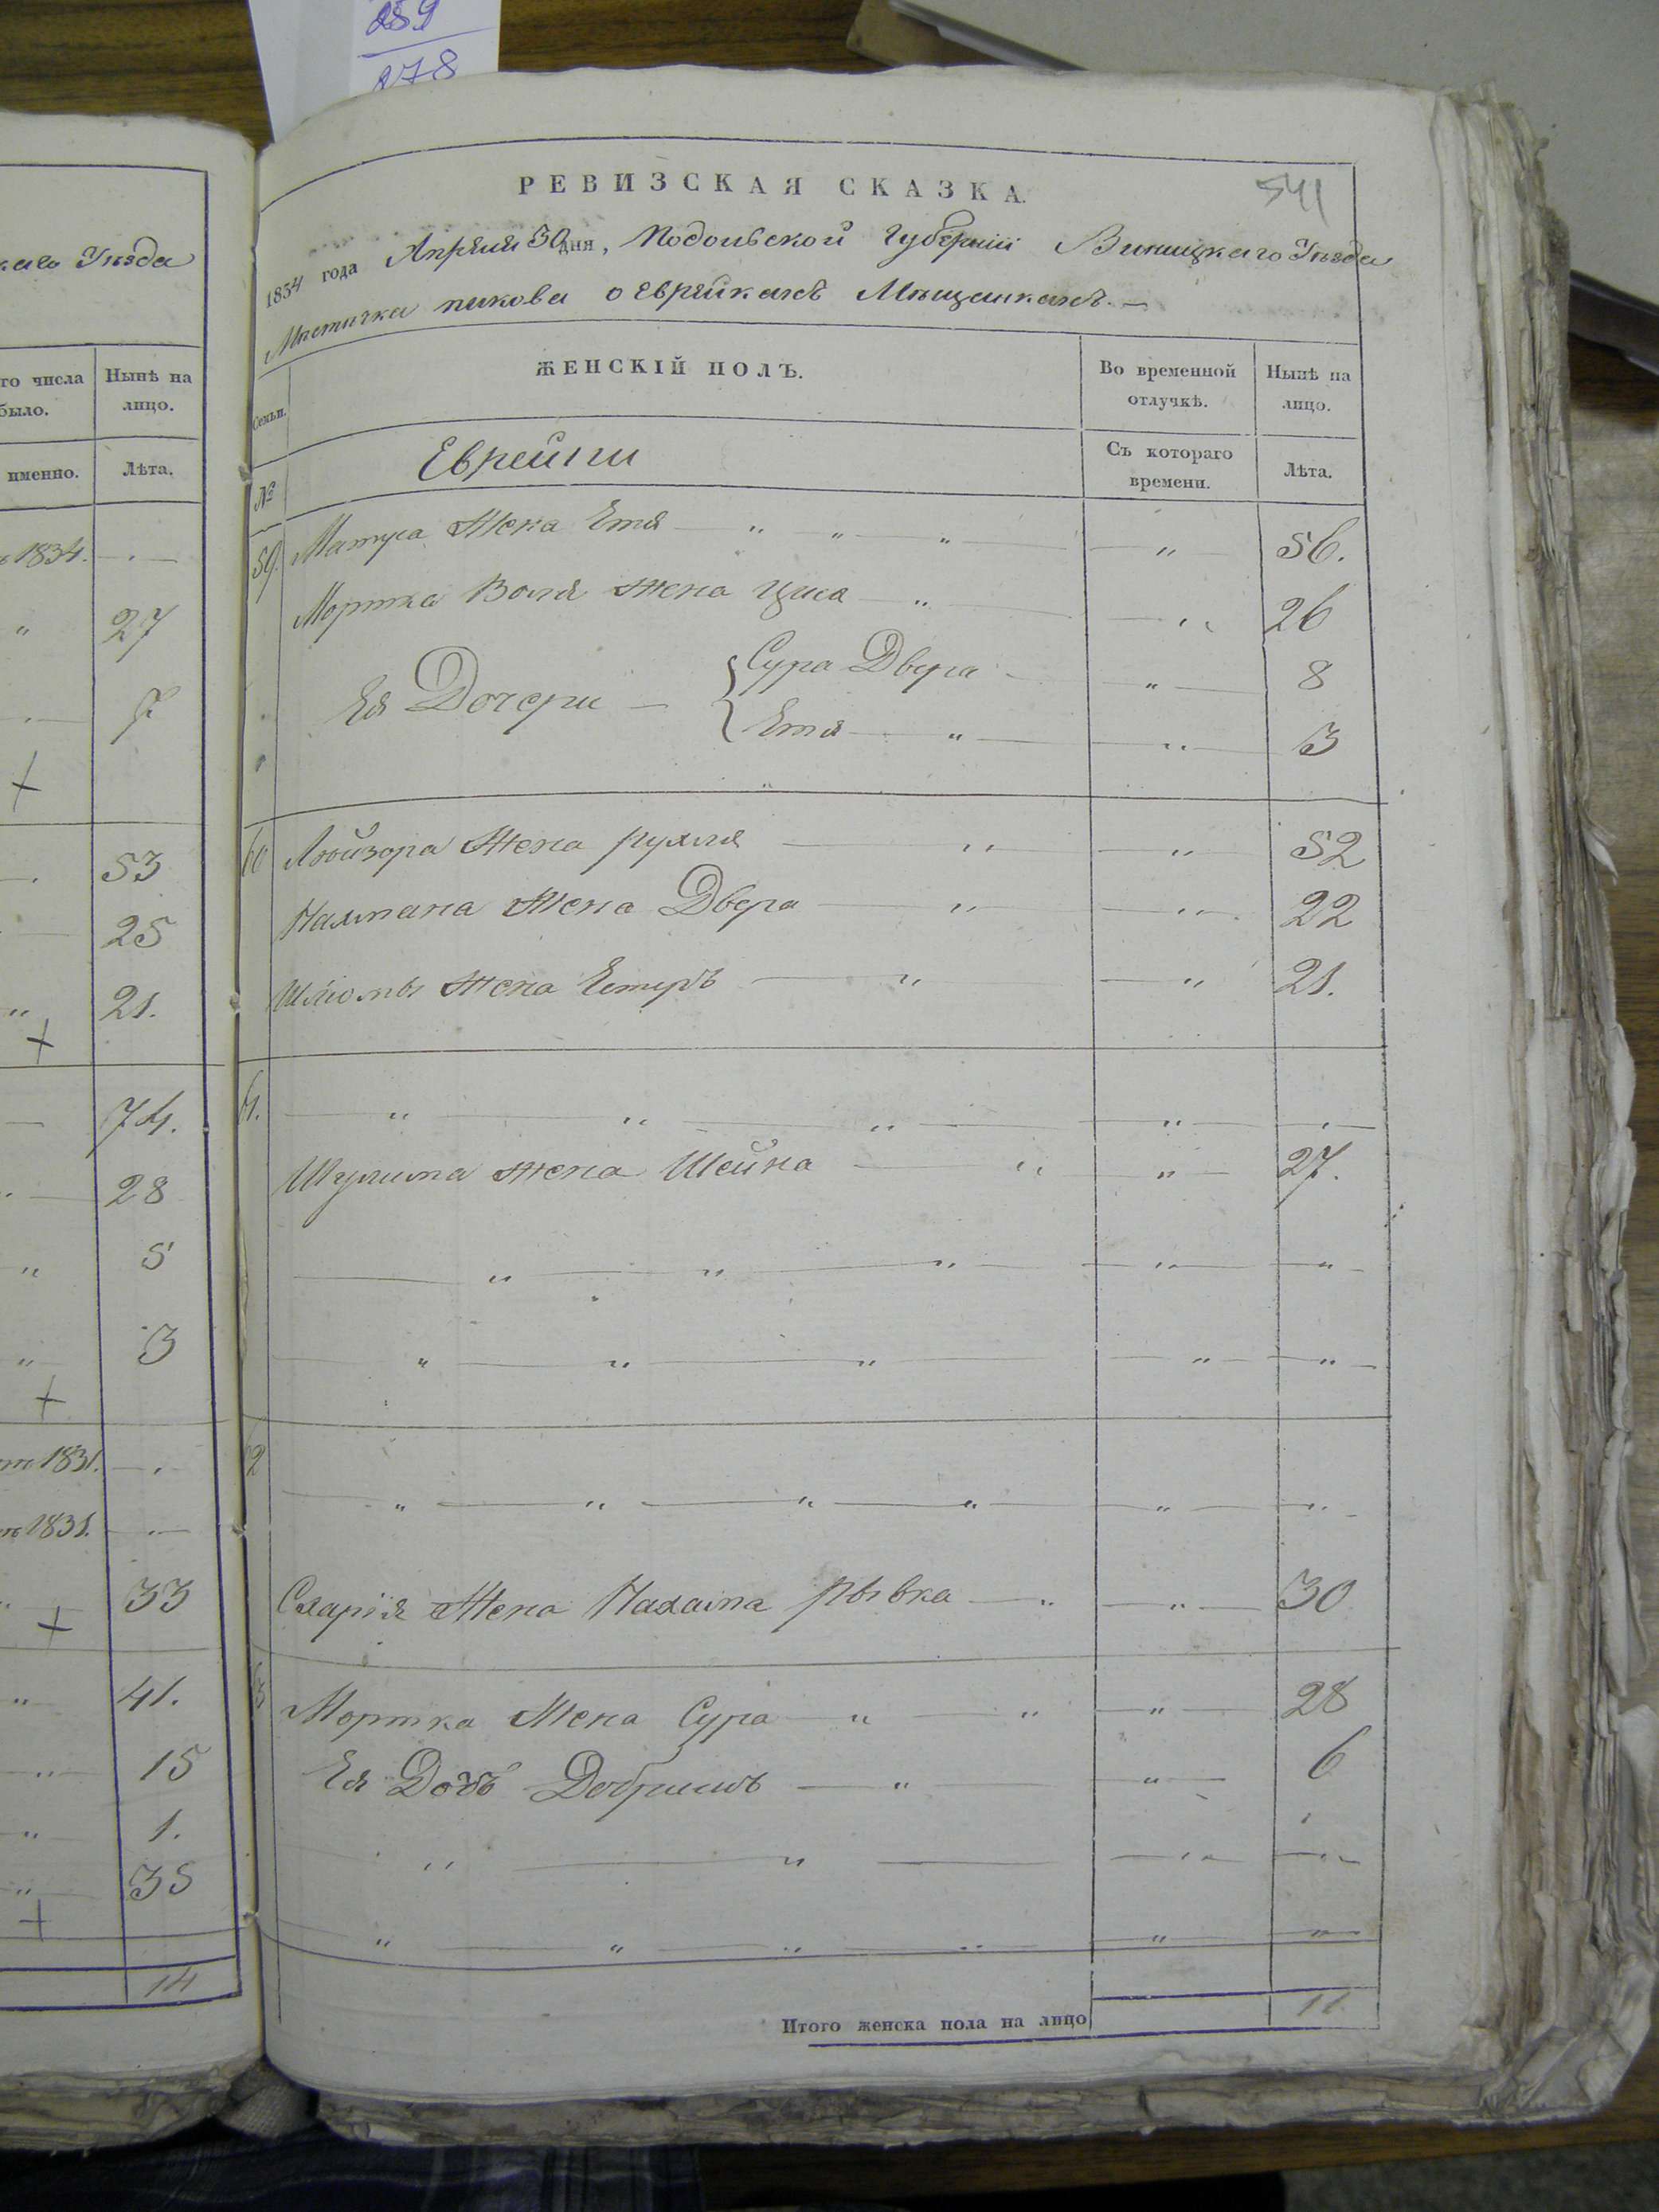 259
278
каго Уѣзда
го числа
было.
Нынѣ на
лицо.
именно.
Лѣта.
1834.
27
7
53
25
21.
74.
28
5
3
1831.
1831.
33
41.
15
1.
35
14
РЕВИЗСКАЯ СКАЗКА.
541
1834 года Апреля 30 дня, Подольской Губерніи Виницкаго Уѣзда
Мѣстичка пикова о Еврейкахъ Мѣщанкахъ.
Семьи.
ЖЕНСКІЙ ПОЛЪ.
Во временной
отлучкѣ.
Нынѣ на
лицо.
№
Еврейки
Съ котораго
времени.
Лѣта.
59. Матуса Жена Етя 56.
Мортка Воля жена Циса 26
Ея Дочери Сура Двера 8
Етя 3
60 Лейзора Жена рухля 52
Нахмана Жена Двера 22
Шліомы Жена Естеръ 21.
61.
Шулима жена Шейна 27.
62
Схарія Жена Нахама рывка 30
63 Мортка Жена Сура 28
Ея Дочь Добришъ 6
Итого женска пола на лицо 11